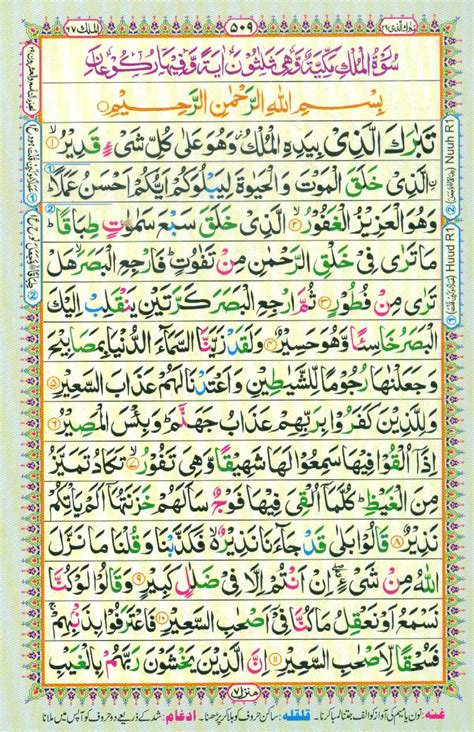 تبرك الذي ٢٩
۵۰۹
الملك ٦٧
سُوْرَةُ الْمُلْكِ مَكِّيَّةٌ وَّهِيَ ثَلٰثُوْنَ اٰيَةً وَّفِيْهَا رُكُوْعَانِ
بِسْمِ اللهِ الرَّحْمٰنِ الرَّحِيْمِ
تَبٰرَكَ الَّذِيْ بِيَدِهِ الْمُلْكُ وَهُوَ عَلٰى كُلِّ شَيْءٍ قَدِيْرُ ۙ﴿۱﴾
اۨلَّذِيْ خَلَقَ الْمَوْتَ وَالْحَيٰوةَ لِيَبْلُوَكُمْ اَيُّكُمْ اَحْسَنُ عَمَلًا ؕ
وَهُوَ الْعَزِيْزُ الْغَفُوْرُ ۙ﴿۲﴾ الَّذِيْ خَلَقَ سَبْعَ سَمٰوٰتٍ طِبَاقًا ؕ
مَا تَرٰى فِيْ خَلْقِ الرَّحْمٰنِ مِنْ تَفٰوُتٍ ؕ فَارْجِعِ الْبَصَرَ ۙ هَلْ
تَرٰى مِنْ فُطُوْرٍ ﴿۳﴾ ثُمَّ ارْجِعِ الْبَصَرَ كَرَّتَيْنِ يَنْقَلِبْ اِلَيْكَ
الْبَصَرُ خَاسِئًا وَّهُوَ حَسِيْرٌ ﴿۴﴾ وَلَقَدْ زَيَّنَّا السَّمَآءَ الدُّنْيَا بِمَصَابِيْحَ
وَجَعَلْنٰهَا رُجُوْمًا لِّلشَّيٰطِيْنِ وَاَعْتَدْنَا لَهُمْ عَذَابَ السَّعِيْرِ ﴿۵﴾
وَلِلَّذِيْنَ كَفَرُوْا بِرَبِّهِمْ عَذَابُ جَهَنَّمَ ؕ وَبِئْسَ الْمَصِيْرُ ﴿۶﴾
اِذَآ اُلْقُوْا فِيْهَا سَمِعُوْا لَهَا شَهِيْقًا وَّهِيَ تَفُوْرُ ۙ﴿۷﴾ تَكَادُ تَمَيَّزُ
مِنَ الْغَيْظِ ؕ كُلَّمَآ اُلْقِيَ فِيْهَا فَوْجٌ سَاَلَهُمْ خَزَنَتُهَآ اَلَمْ يَاْتِكُمْ
نَذِيْرٌ ﴿۸﴾ قَالُوْا بَلٰى قَدْ جَآءَنَا نَذِيْرٌ ۙ فَكَذَّبْنَا وَقُلْنَا مَا نَزَّلَ
اللهُ مِنْ شَيْءٍ ۖۚ اِنْ اَنْتُمْ اِلَّا فِيْ ضَلٰلٍ كَبِيْرٍ ﴿۹﴾ وَقَالُوْا لَوْ كُنَّا
نَسْمَعُ اَوْ نَعْقِلُ مَا كُنَّا فِيْٓ اَصْحٰبِ السَّعِيْرِ ﴿۱۰﴾ فَاعْتَرَفُوْا بِذَنْۢبِهِمْ ۚ
فَسُحْقًا لِّاَصْحٰبِ السَّعِيْرِ ﴿۱۱﴾ اِنَّ الَّذِيْنَ يَخْشَوْنَ رَبَّهُمْ بِالْغَيْبِ
منزل ۷
غنه: نون یا میم کی آواز کو الف جتنا لمبا کرنا۔ قلقله: ساکن حروف کو ہلا کر پڑھنا۔ ادغام: شد کے ذریعے دو حروف کو آپس میں ملانا
Nuuh R1
Huud R1